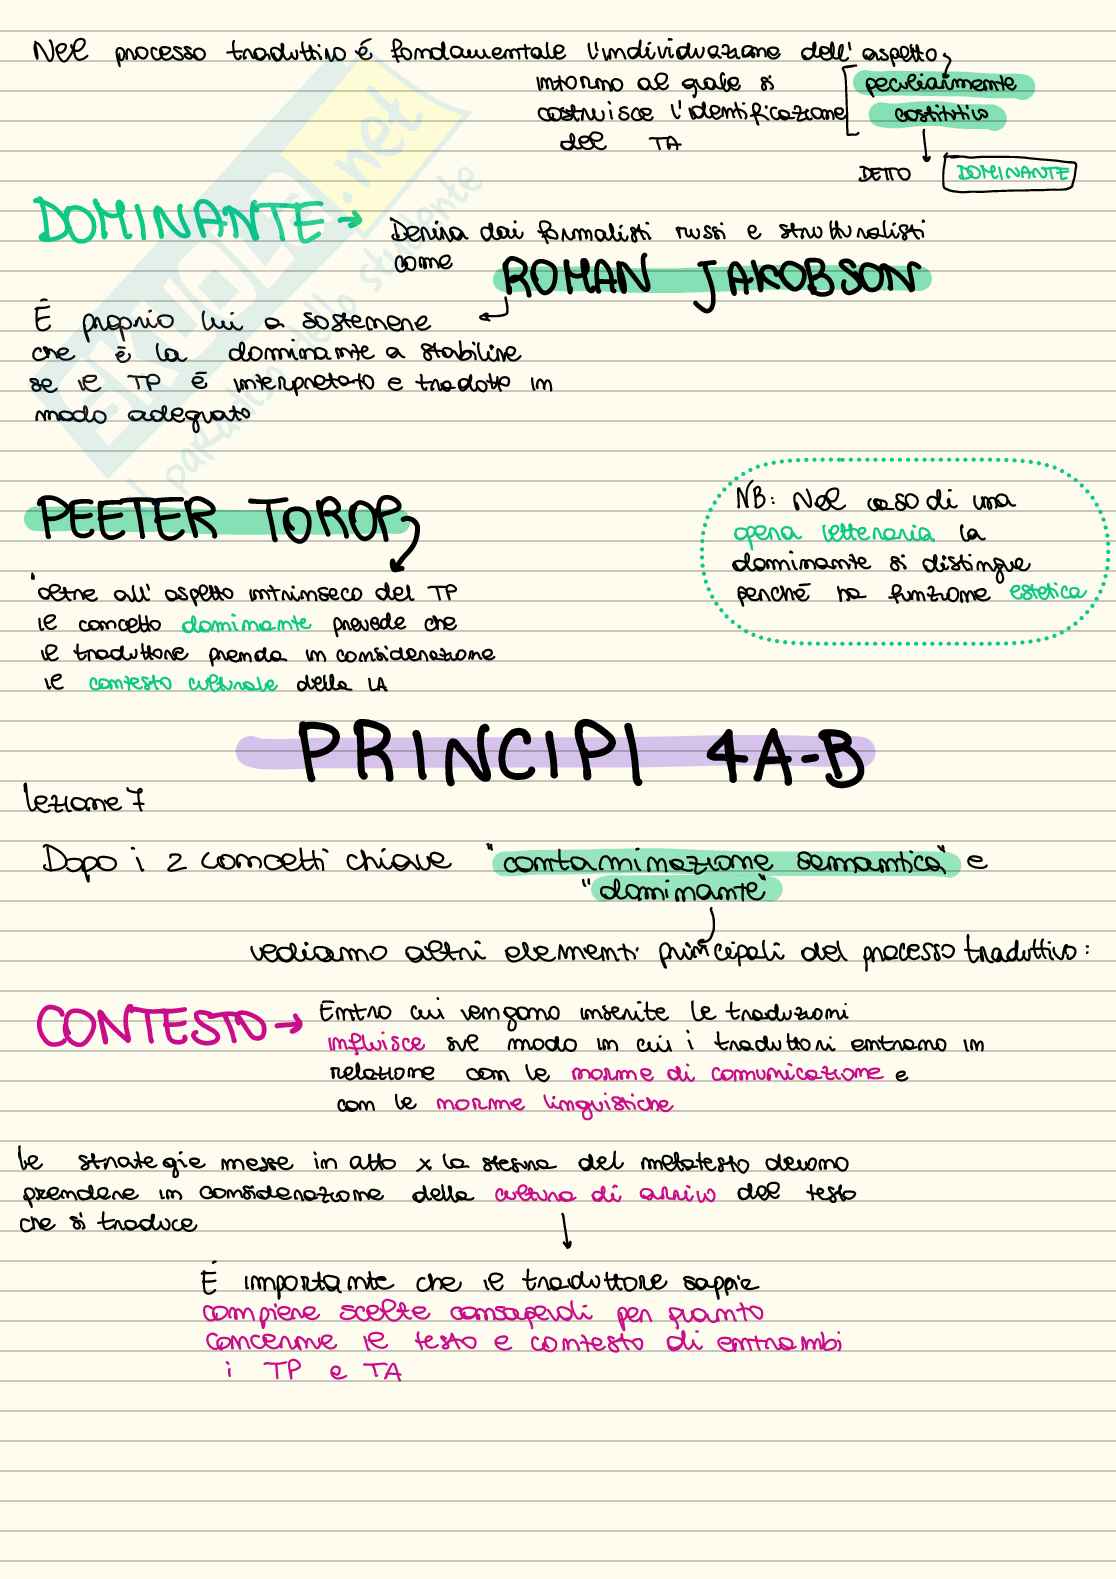 Nel processo traduttivo é fondamentale l'individuazione dell'aspetto
peculiarmente
costitutivo
intorno al quale si
costruisce l'identificazione
del TA
DETTO DOMINANTE
DOMINANTE → Deriva dai formalisti russi e strutturalisti
come ROMAN JAKOBSON
È proprio lui a sostenere
che è la dominante a stabilire
se il TP è interpretato e tradotto in
modo adeguato
PEETER TOROP
"oltre all'aspetto intrinseco del TP
il concetto dominante prevede che
il traduttore prenda in considerazione
il contesto culturale della LA
NB: Nel caso di una
opera letteraria la
dominante si distingue
perché ha funzione estetica
PRINCIPI 4A-B
lezione 7
Dopo i 2 concetti chiave "contaminazione semantica" e
"dominante"
vediamo altri elementi principali del processo traduttivo:
CONTESTO → Entro cui vengono inserite le traduzioni
influisce sul modo in cui i traduttori entrano in
relazione con le norme di comunicazione e
con le norme linguistiche
le strategie messe in atto x la stesura del metatesto devono
prendere in considerazione della cultura di arrivo del testo
che si traduce
È importante che il traduttore sappia
compiere scelte consapevoli per quanto
concerne il testo e contesto di entrambi
i TP e TA
SKUOLA.net
il paradiso dello studente